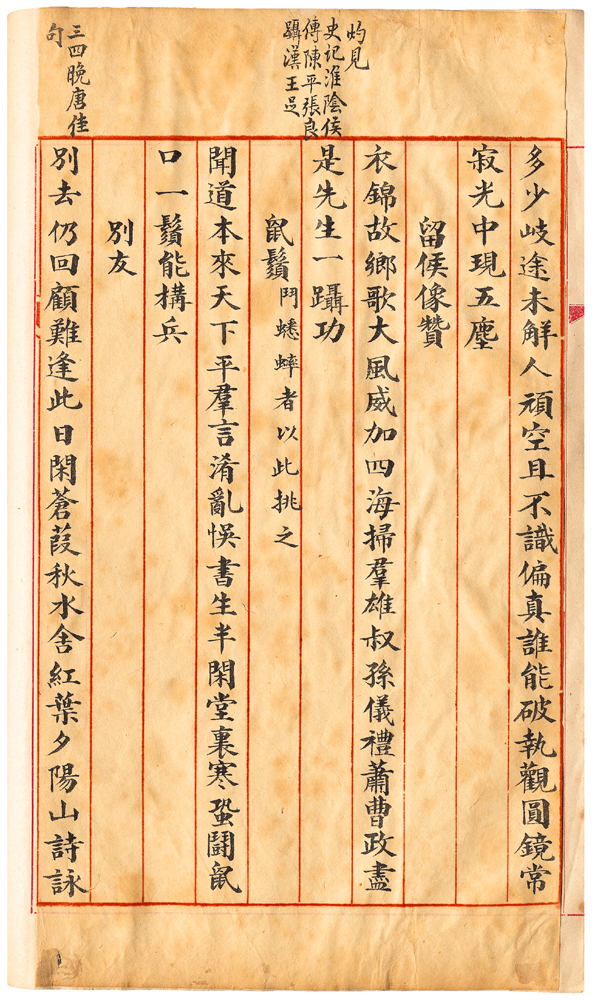 灼見
史记淮陰侯
傳陳平張良
躡漢王足
三四晚唐佳
句
多少岐途未解人頑空且不識偏真誰能破執觀圓鏡常
寂光中現五塵
留侯像贊
衣錦故鄉歌大風威加四海掃羣雄叔孫儀禮蕭曹政盡
是先生一躡功
鼠鬚鬥蟋蟀者以此挑之
聞道本來天下平羣言淆亂悞書生半閑堂裏寒蛩鬪鼠
口一鬚能構兵
別友
別去仍回顧難逢此日閑蒼葭秋水舍紅葉夕陽山詩詠